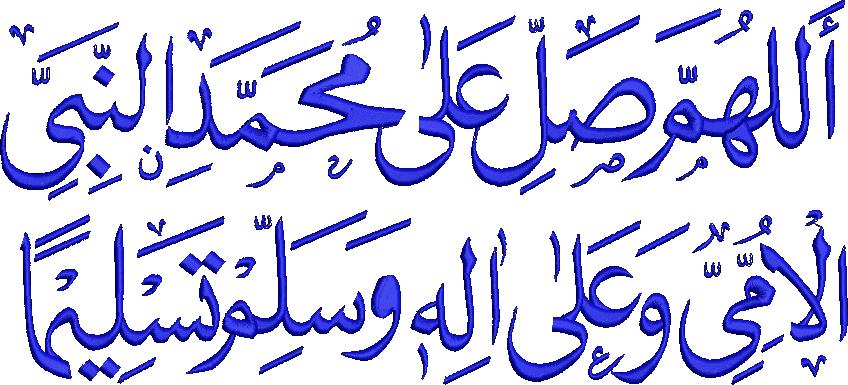 أَللهُمَّ صَلِّ عَلىٰ مُحَمَّدِ النَّبِيِّ
الْاُمِّيِّ وَعَلىٰ اٰلِهٖ وَسَلِّمْ تَسْلِيْمًا